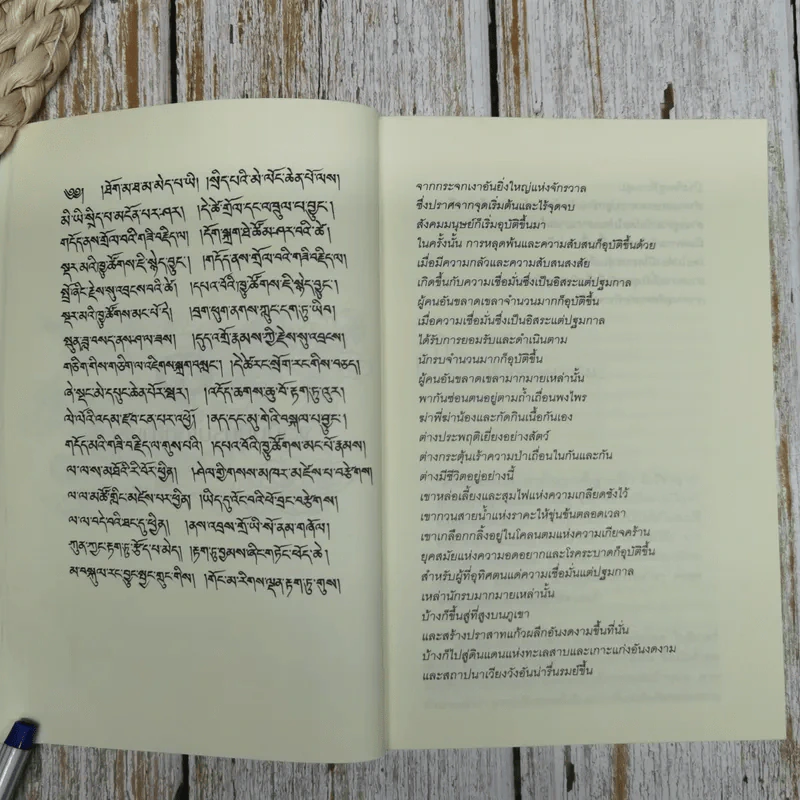 ༄༅། །ཐོག་མ་ཐ་མ་མེད་པ་ཡི། །སྲིད་པའི་མེ་ལོང་ཆེན་པོ་ལས།
མི་ཡི་སྲིད་པ་མངོན་པར་ཤར། །དེ་ཚེ་གྲོལ་དང་འཁྲུལ་པ་བྱུང་།
གདོད་ནས་གྲོལ་བའི་གཟི་བརྗིད་ལ། །དོགས་སྐྲག་ཐེ་ཚོམ་ཤར་བའི་ཚེ།
སྡར་མའི་ཁྱུ་ཚོགས་ཇི་སྙེད་བྱུང་། །གདོད་ནས་གྲོལ་བའི་གཟི་བརྗིད་ལ།
སྤྲོ་ཞིང་རྗེས་སུ་འབྲངས་བའི་ཚེ། །དཔའ་བོའི་ཁྱུ་ཚོགས་ཇི་སྙེད་བྱུང་།
སྡར་མའི་ཁྱུ་ཚོགས་མང་པོ་དེ། །བྲག་ཕུག་ནགས་ཀླུང་དག་ཏུ་ཡིབ།
སྤུན་ཟླ་བསད་ནས་ཤ་ལ་ཟས། །དུད་འགྲོ་རྣམས་ཀྱི་རྗེས་སུ་འབྲངས།
གཅིག་གིས་གཅིག་ལ་འཇིགས་སྐྲག་བསླང་། །དེ་ཚེ་རང་སྲོག་རང་གིས་བཅད།
ཞེ་སྡང་མེ་དཔུང་ཆེན་པོར་སྦར། །འདོད་ཆགས་ཆུ་བོ་རྟག་ཏུ་དཀྲུགས།
ལེ་ལོའི་འདམ་རྫབ་ངན་པར་འཕྱོ། །ནད་དང་མུ་གེའི་བསྐལ་པ་བྱུང་།
གདོད་མའི་གཟི་བརྗིད་ལ་གུས་པའི། །དཔའ་བོའི་ཁྱུ་ཚོགས་མང་པོ་རྣམས།
ལ་ལ་ས་མཐོའི་རི་བོར་ཕྱིན། །ཤེལ་གྱི་གསས་མཁར་མཛེས་པ་བརྩིགས།
ལ་ལ་མཚོ་གླིང་མཛེས་པར་ཕྱིན། །ཡིད་དུ་འོང་བའི་ཕོ་བྲང་བརྩིགས།
ལ་ལ་བདེ་བའི་ཐང་དུ་ཕྱིན། །ནས་འབྲས་གྲོ་ཡི་སོ་ནམ་གཞོལ།
ཀུན་ཀྱང་རྟག་ཏུ་རྩོད་པ་མེད། །རྟག་ཏུ་བྱམས་ཞིང་གཏོང་ཕོད་ཆེ།
མ་བསྐུལ་རང་བྱུང་སྦྱང་གྲུང་གིས། །གོང་མ་རིགས་ལྡན་རྟག་ཏུ་གུས།
จากกระจกเงาอันยิ่งใหญ่แห่งจักรวาล
ซึ่งปราศจากจุดเริ่มต้นและไร้จุดจบ
สังคมมนุษย์ก็เริ่มอุบัติขึ้นมา
ในครั้งนั้น การหลุดพ้นและความสับสนก็อุบัติขึ้นด้วย
เมื่อมีความกลัวและความสับสนสงสัย
เกิดขึ้นกับความเชื่อมั่นซึ่งเป็นอิสระแต่ปฐมกาล
ผู้คนอันขลาดเขลาจำนวนมากก็อุบัติขึ้น
เมื่อความเชื่อมั่นซึ่งเป็นอิสระแต่ปฐมกาล
ได้รับการยอมรับและดำเนินตาม
นักรบจำนวนมากก็อุบัติขึ้น
ผู้คนอันขลาดเขลามากมายเหล่านั้น
พากันซ่อนตนอยู่ตามถ้ำเถื่อนพงไพร
ฆ่าพี่ฆ่าน้องและกัดกินเนื้อกันเอง
ต่างประพฤติเยี่ยงอย่างสัตว์
ต่างกระตุ้นเร้าความป่าเถื่อนในกันและกัน
ต่างมีชีวิตอยู่อย่างนี้
เขาหล่อเลี้ยงและสุมไฟแห่งความเกลียดชังไว้
เขากวนสายน้ำแห่งราคะให้ขุ่นข้นตลอดเวลา
เขาเกลือกกลิ้งอยู่ในโคลนตมแห่งความเกียจคร้าน
ยุคสมัยแห่งความอดอยากและโรคระบาดก็อุบัติขึ้น
สำหรับผู้ที่อุทิศตนแด่ความเชื่อมั่นแต่ปฐมกาล
เหล่านักรบมากมายเหล่านั้น
บ้างก็ขึ้นสู่ที่สูงบนภูเขา
และสร้างปราสาทแก้วผลึกอันงดงามขึ้นที่นั่น
บ้างก็ไปสู่ดินแดนแห่งทะเลสาบและเกาะแก่งอันงดงาม
และสถาปนาเวียงวังอันน่ารื่นรมย์ขึ้น